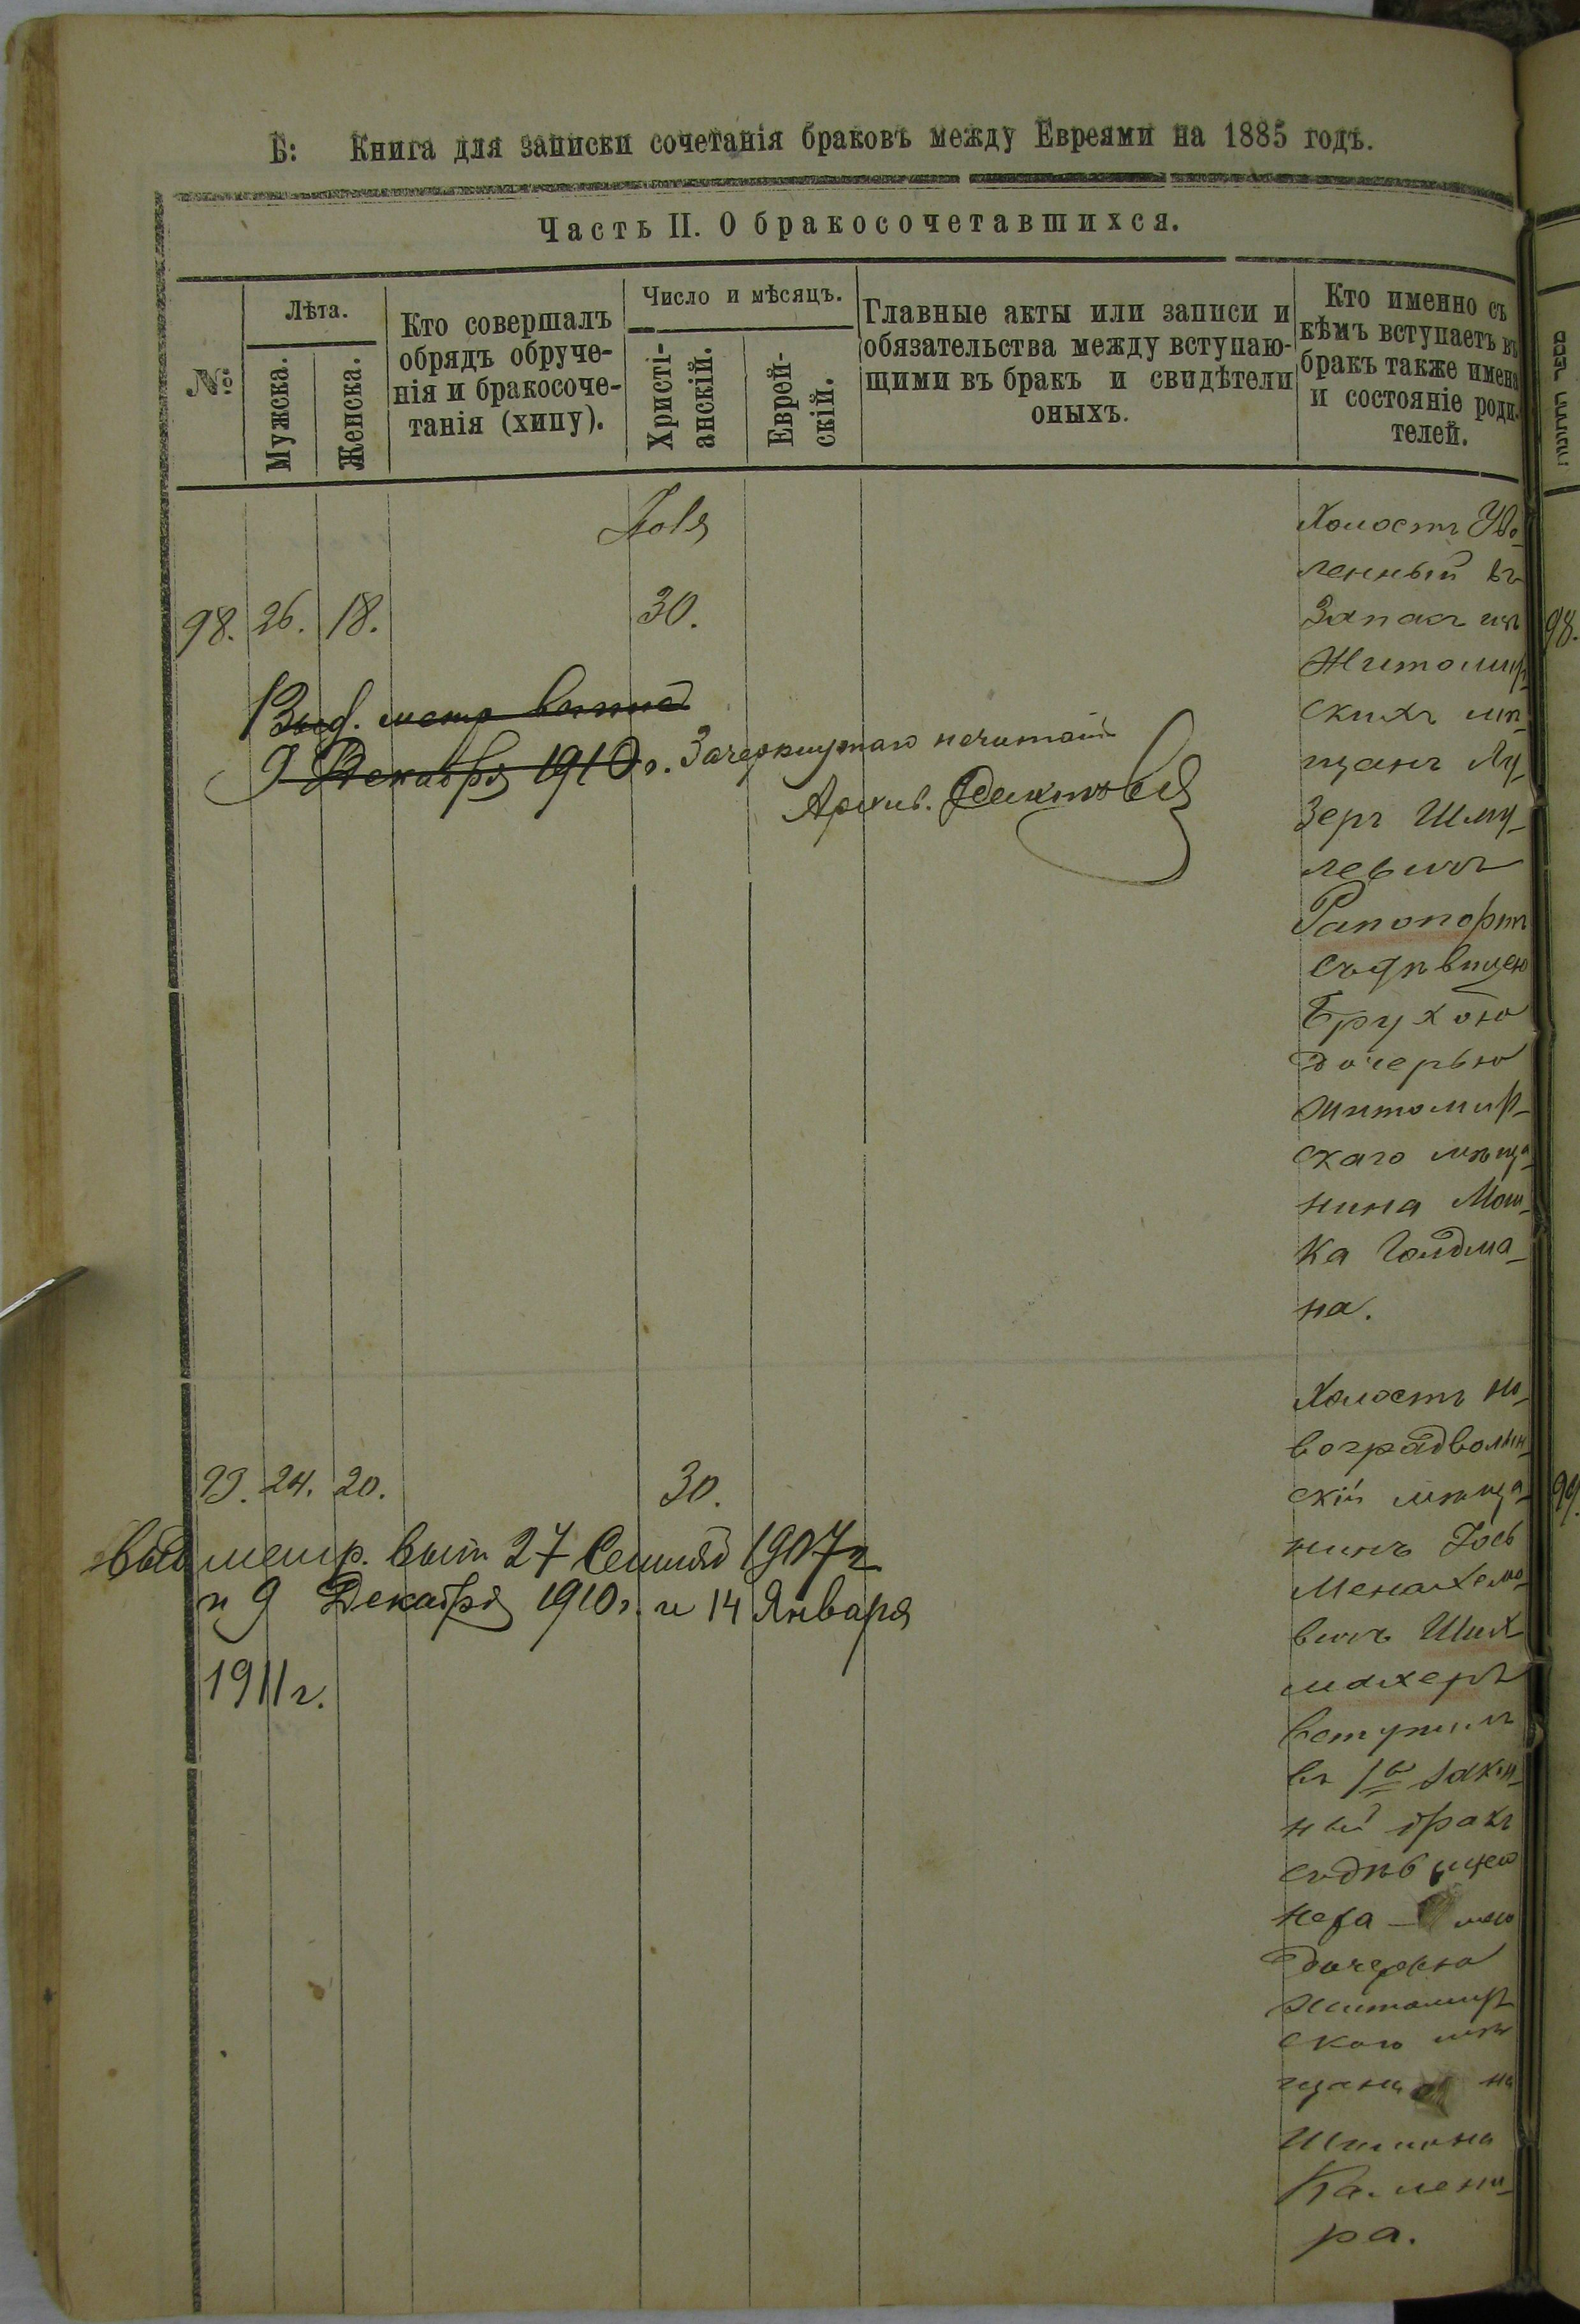 Б: Книга для записки сочетанія браковъ между Евреями на 1885 годъ.
Часть II. О бракосочетавшихся.
№
Лѣта.
Мужска.
Женска.
Кто совершалъ
обрядъ обруче-
нія и бракосоче-
танія (хипу).
Число и мѣсяцъ.
Христі-
анскій.
Еврей-
скій.
Главные акты или записи и
обязательства между вступаю-
щими въ бракъ и свидѣтели
оныхъ.
Кто именно съ
кѣмъ вступаетъ въ
бракъ также имена
и состояніе роди-
телей.
Іюля
98. 26. 18. 30.
Холостъ Уво-
ленный въ
Запасъ изъ
Житомир-
скихъ мѣ-
щанъ Лу-
зеръ Шму-
левичъ
Рапопортъ
съ дѣвицею
Брухою
дочерью
житомир-
скаго мѣща-
нина Мош-
ка Гольдма-
на.
Выд. метр. выпись
9 Декабря 1910 г. Зачеркнутаго не читать
Архив.
99. 24. 20. 30.
Холостъ но-
воградволын-
скій мѣща-
нинъ Іось
Менахемо-
вичъ Ших
махеръ
вступилъ
въ 1й закон-
ный бракъ
съ дѣвицею
Неха-
дочерью
житомир-
скаго мѣ-
щани на
Шимона
Каменш-
ра.
выд метр. вып 27 1907 г
и 9 Декабря 1910 г. и 14 Января
1911 г.
98.
99.